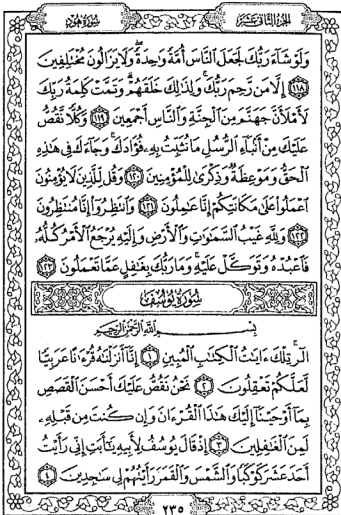 الجزء الثاني عشر
سورة هود
وَلَوْ شَآءَ رَبُّكَ لَجَعَلَ ٱلنَّاسَ أُمَّةً وَٰحِدَةً وَلَا يَزَالُونَ مُخْتَلِفِينَ
١١٨ إِلَّا مَن رَّحِمَ رَبُّكَ وَلِذَٰلِكَ خَلَقَهُمْ وَتَمَّتْ كَلِمَةُ رَبِّكَ
لَأَمْلَأَنَّ جَهَنَّمَ مِنَ ٱلْجِنَّةِ وَٱلنَّاسِ أَجْمَعِينَ ١١٩ وَكُلًّا نَّقُصُّ
عَلَيْكَ مِنْ أَنۢبَآءِ ٱلرُّسُلِ مَا نُثَبِّتُ بِهِۦ فُؤَادَكَ وَجَآءَكَ فِى هَٰذِهِ
ٱلْحَقُّ وَمَوْعِظَةٌ وَذِكْرَىٰ لِلْمُؤْمِنِينَ ١٢٠ وَقُل لِّلَّذِينَ لَا يُؤْمِنُونَ
ٱعْمَلُوا۟ عَلَىٰ مَكَانَتِكُمْ إِنَّا عَٰمِلُونَ ١٢١ وَٱنتَظِرُوٓا۟ إِنَّا مُنتَظِرُونَ
١٢٢ وَلِلَّهِ غَيْبُ ٱلسَّمَٰوَٰتِ وَٱلْأَرْضِ وَإِلَيْهِ يُرْجَعُ ٱلْأَمْرُ كُلُّهُۥ
فَٱعْبُدْهُ وَتَوَكَّلْ عَلَيْهِ وَمَا رَبُّكَ بِغَٰفِلٍ عَمَّا تَعْمَلُونَ ١٢٣
سورة يوسف
بِسْمِ ٱللَّهِ ٱلرَّحْمَٰنِ ٱلرَّحِيمِ
الٓر تِلْكَ ءَايَٰتُ ٱلْكِتَٰبِ ٱلْمُبِينِ ١ إِنَّآ أَنزَلْنَٰهُ قُرْءَٰنًا عَرَبِيًّا
لَّعَلَّكُمْ تَعْقِلُونَ ٢ نَحْنُ نَقُصُّ عَلَيْكَ أَحْسَنَ ٱلْقَصَصِ
بِمَآ أَوْحَيْنَآ إِلَيْكَ هَٰذَا ٱلْقُرْءَانَ وَإِن كُنتَ مِن قَبْلِهِۦ
لَمِنَ ٱلْغَٰفِلِينَ ٣ إِذْ قَالَ يُوسُفُ لِأَبِيهِ يَٰٓأَبَتِ إِنِّى رَأَيْتُ
أَحَدَ عَشَرَ كَوْكَبًا وَٱلشَّمْسَ وَٱلْقَمَرَ رَأَيْتُهُمْ لِى سَٰجِدِينَ ٤
٢٣٥